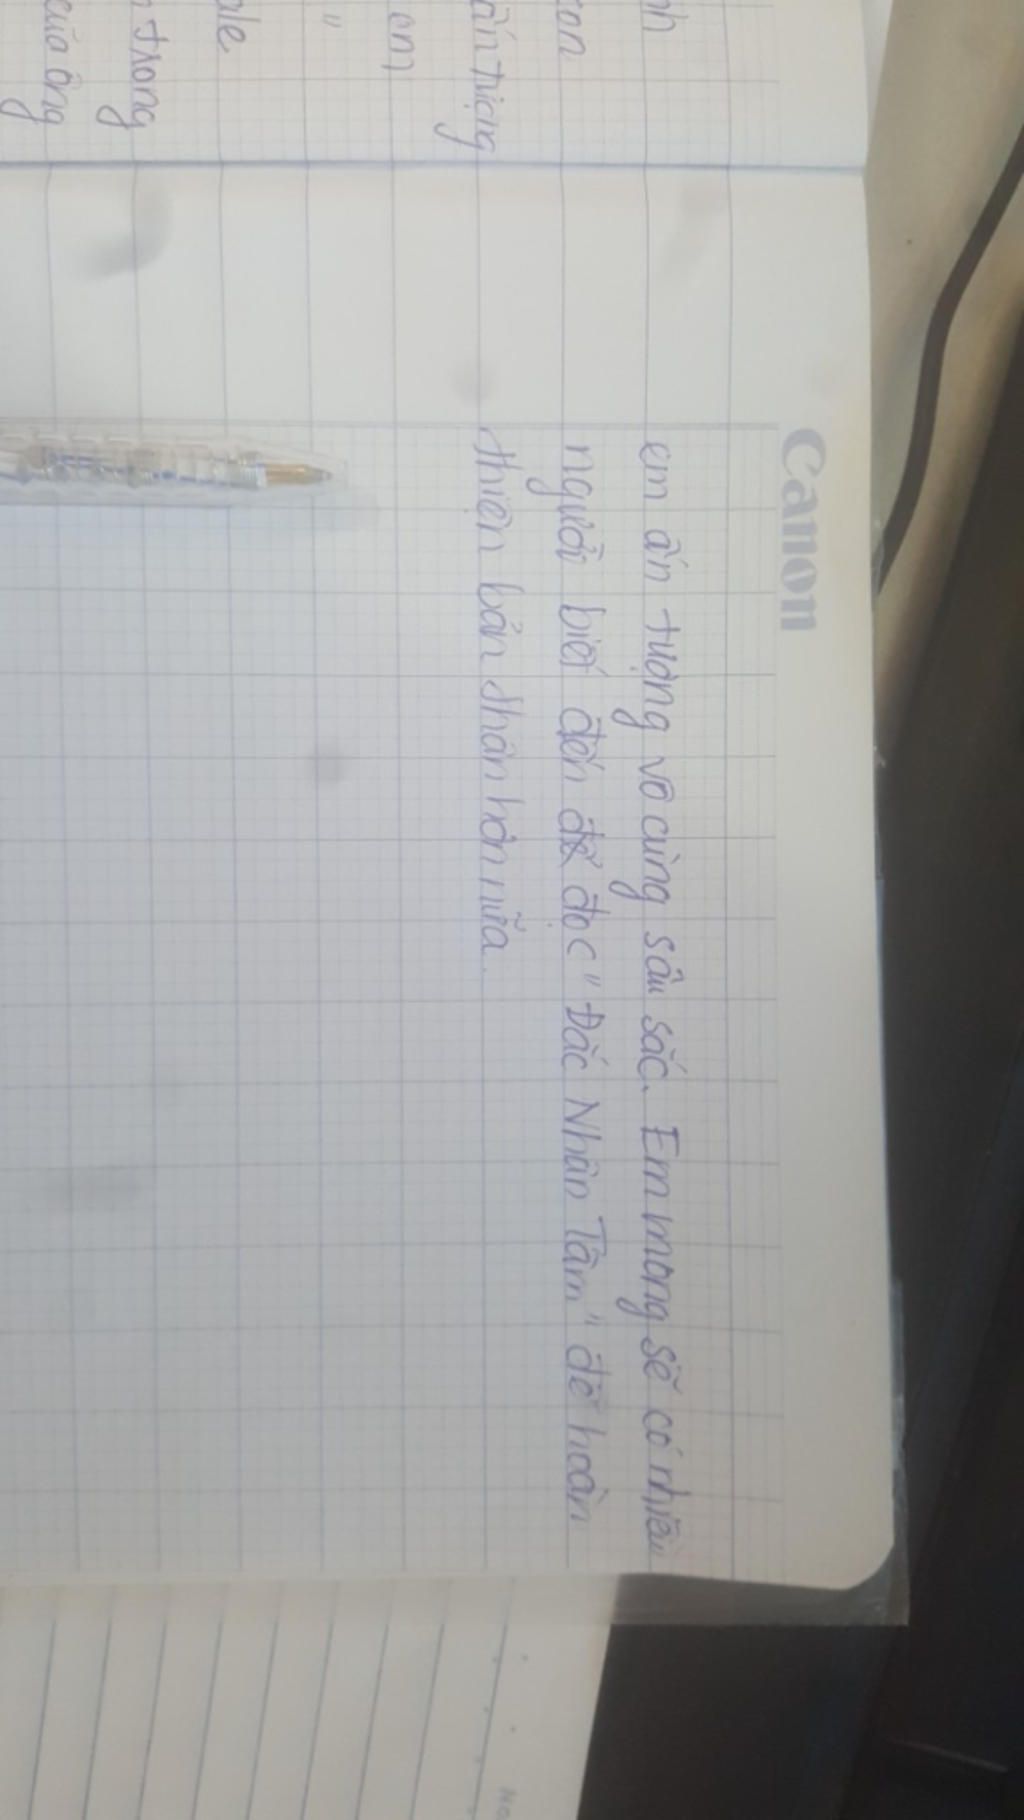 Canon
em ấn tượng vô cùng sâu sắc. Em mong sẽ có nhiều
người biết đến để đọc "Đắc Nhân Tâm" để hoàn
thiện bản thân hơn nữa.
nh
ấn tượng
em
"
ale
trong
của ông
No.